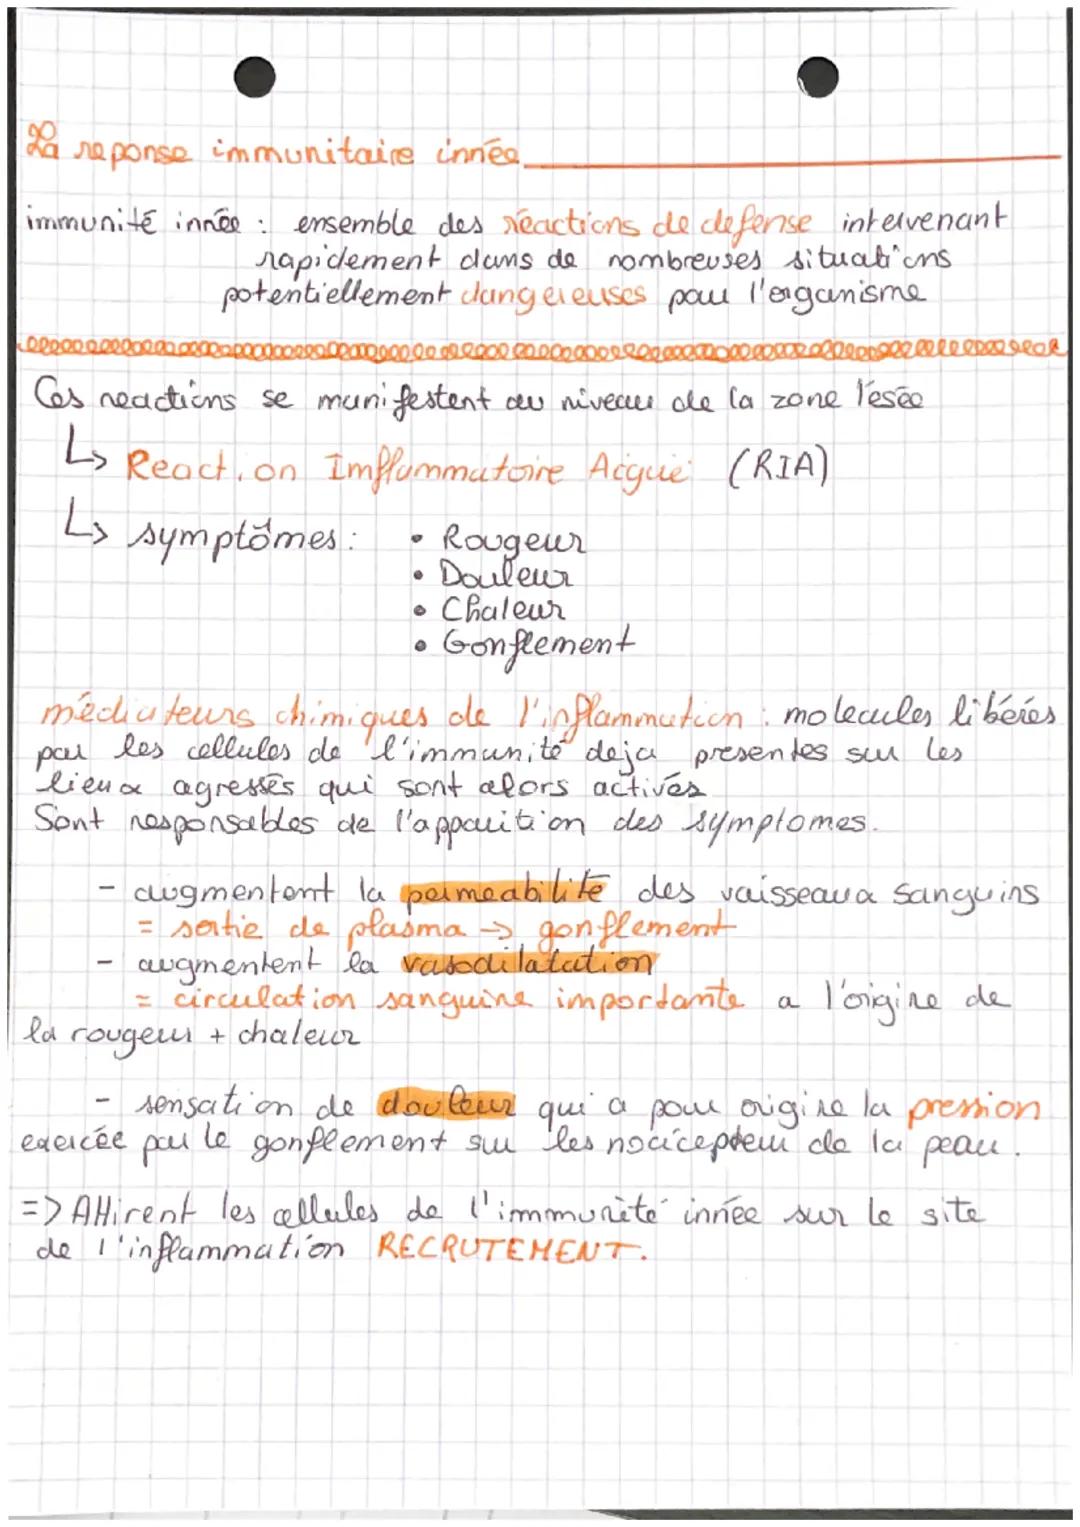 La reponse immunitaire innée
immunité innée : ensemble des réactions de defense intervenant
rapidement dans de nombreuses situations
potentiellement dangereuses pour l'organisme
Ces reactions se manifestent au niveau de la zone lésée
↳ Reaction Imflammatoire Aigue (RIA)
↳ symptômes : • Rougeur
• Douleur
• Chaleur
• Gonflement
médiateurs chimiques de l'inflammation : molecules libérés
par les cellules de l'immunité deja presentes sur les
lieux agressés qui sont alors activés
Sont responsables de l'apparition des symptomes.
- augmentent la permeabilité des vaisseaux sanguins
= sortie de plasma -> gonflement
- augmentent la vasodilatation
= circulation sanguine importante a l'origine de
la rougeur + chaleur
- sensation de douleur qui a pour origine la pression
exercée par le gonflement sur les nocicepteur de la peau.
=> Attirent les cellules de l'immunité innée sur le site
de l'inflammation RECRUTEMENT.